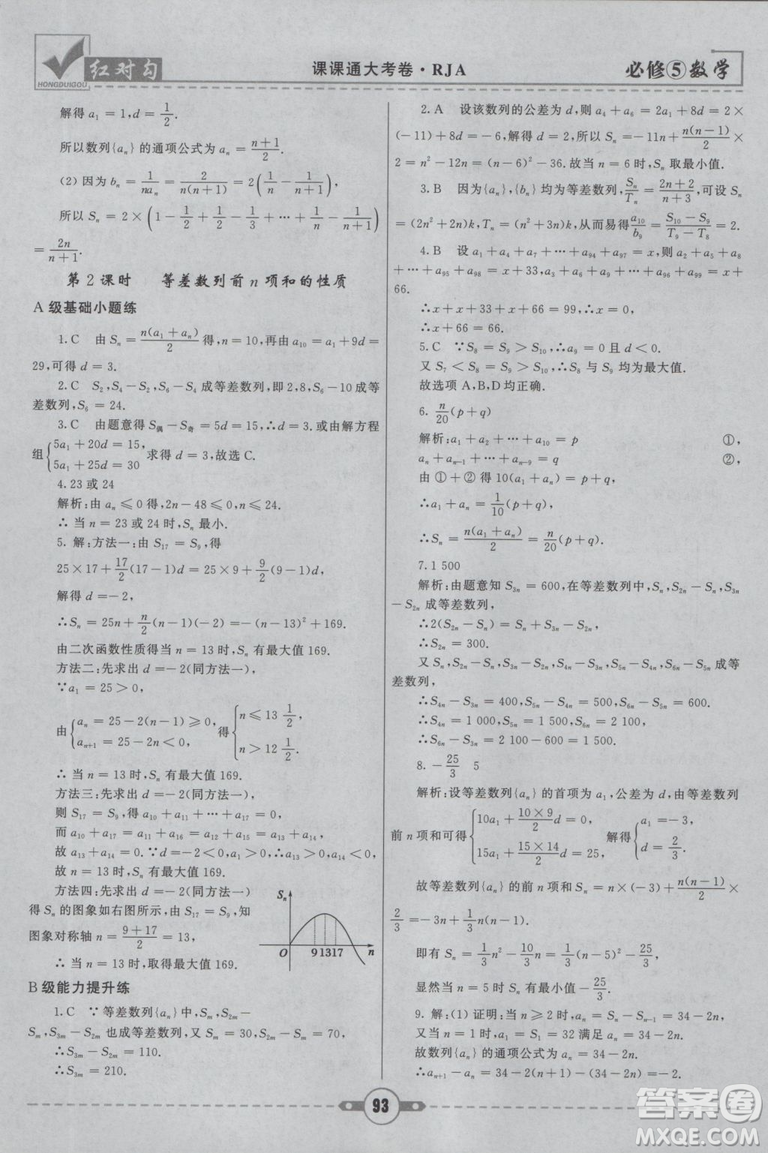 红对勾
HONGDUIGOU
课课通大考卷·RJA
必修⑤数学
解得 a₁=1,d=1/2.
所以数列{aₙ}的通项公式为 aₙ=(n+1)/2.
(2)因为 bₙ=1/(naₙ)=2/(n(n+1))=2(1/n-1/(n+1)),
所以 Sₙ=2×(1-1/2+1/2-1/3+…+1/n-1/(n+1))
=2n/(n+1).
第2课时 等差数列前n项和的性质
A级基础小题练
1.C 由 Sₙ=n(a₁+aₙ)/2 得,n=10,再由 a₁₀=a₁+9d=
29,可得 d=3.
2.C S₂,S₄-S₂,S₆-S₄成等差数列,即2,8,S₆-10成等
差数列,S₆=24.
3.C 由题意得 S偶-S奇=5d=15,∴d=3,或由解方程
组{5a₁+20d=15 5a₁+25d=30 求得 d=3,故选C.
4.23或24
解析:由 aₙ≤0得,2n-48≤0,n≤0.
∴当 n=23或24时,Sₙ最小.
5.解:方法一:由 S₁₇=S₉,得
25×17+17/2×(17-1)d=25×9+9/2×(9-1)d,
解得 d=-2,
∴Sₙ=25n+n/2(n-1)(-2)=-(n-13)²+169.
由二次函数性质得当 n=13时,Sₙ有最大值169.
方法二:先求出 d=-2(同方法一),
∵a₁=25>0,
由{aₙ=25-2(n-1)≥0 aₙ₊₁=25-2n≤0 得{n≤13 1/2, n>12 1/2.
∴当 n=13时,Sₙ有最大值169.
方法三:先求出 d=-2(同方法一),
则 S₁₇=S₉,得 a₁₀+a₁₁+…+a₁₇=0,
而 a₁₀+a₁₇=a₁₁+a₁₆=a₁₂+a₁₅=a₁₃+a₁₄,
故 a₁₃+a₁₄=0.∵d=-2<0,a₁>0,∴a₁₃>0,a₁₄<0.
故 n=13时,Sₙ有最大值169.
方法四:先求出 d=-2(同方法一),
得 Sₙ的图象如右图所示,由 S₁₇=S₉,知
图象对称轴 n=(9+17)/2=13,
∴当 n=13时,取得最大值169.
Sₙ
O
9 13 17
n
B级能力提升练
1.C ∵等差数列{aₙ}中,Sₘ,S₂ₘ-
Sₘ,S₃ₘ-S₂ₘ也成等差数列,又 Sₘ=30,S₂ₘ-Sₘ=70,
∴S₃ₘ-S₂ₘ=110.
∴S₃ₘ=210.
2.A 设该数列的公差为 d,则 a₄+a₆=2a₁+8d=2×
(-11)+8d=-6,解得 d=2,所以 Sₙ=-11n+n(n-1)/2×
2=n²-12n=(n-6)²-36.故当 n=6时,Sₙ取最小值.
3.B 因为{aₙ},{bₙ}均为等差数列,且 Sₙ/Tₙ=(2n+2)/(n+3),可设
Sₙ=(2n²+2n)k,Tₙ=(n²+3n)k,从而易得 a₁₀/b₉=(S₁₀-S₉)/(T₉-T₈)=2.
4.B 设 a₁+a₄+a₇+…+a₉₄+a₉₇=x,则 x+x+33+x+
66.
∴x+x+33+x+66=99.
∴x+66=66.
5.C ∵S₈=S₇>S₉,∴a₈=0且 d<0.
又 S₇=S₈>S₆,∴S₇与 S₈均为最大值.
故选项A,B,D均正确.
6.n/20(p+q)
解析:a₁+a₂+…+a₁₀=p ①,
aₙ+aₙ₋₁+…+aₙ₋₉=q ②,
由①+②得10(a₁+aₙ)=p+q,
∴a₁+aₙ=1/10(p+q),
∴Sₙ=n(a₁+aₙ)/2=n/20(p+q).
7.1 500
解析:由题意知 S₃ₘ=600,在等差数列中,Sₘ,S₂ₘ-Sₘ,S₃ₘ
-S₂ₘ成等差数列,
∴2(S₂ₘ-Sₘ)=Sₘ+S₃ₘ-S₂ₘ.
∴S₂ₘ=300.
又 Sₘ,S₂ₘ-Sₘ,S₃ₘ-S₂ₘ,S₄ₘ-S₃ₘ,S₅ₘ-S₄ₘ成等
差数列,
∴S₄ₘ-S₃ₘ=400,S₅ₘ-S₄ₘ=500,S₆ₘ-S₅ₘ=600.
∴S₄ₘ=1 000,S₅ₘ=1 500,S₅ₘ=1 500.
8.-25/3 5
解析:设等差数列{aₙ}的首项为 a₁,公差为 d,由等差数列
前n项和可得{10a₁+(10×9)/2d=0, 15a₁+(15×14)/2d=25, 解得{a₁=-3, d=2/3.
故等差数列{aₙ}的前n项和 Sₙ=na₁+n(n-1)/2d=-3n+n(n-1)/2×
2/3=1/3n(n-1).
即有 Sₙ=1/3n²-10/3n=1/3(n-5)²-25/3,
显然当 n=5时,Sₙ有最小值-25/3.
9.解:(1)证明:当 n≥2时,aₙ=Sₙ-Sₙ₋₁=34-2n.
又当 n=1时,a₁=S₁=32满足 aₙ=34-2n.
故数列{aₙ}的通项公式为 aₙ=34-2n.
∴aₙ₊₁-aₙ=34-2(n+1)-(34-2n)=-2.
93
答案圈
MXQE.COM